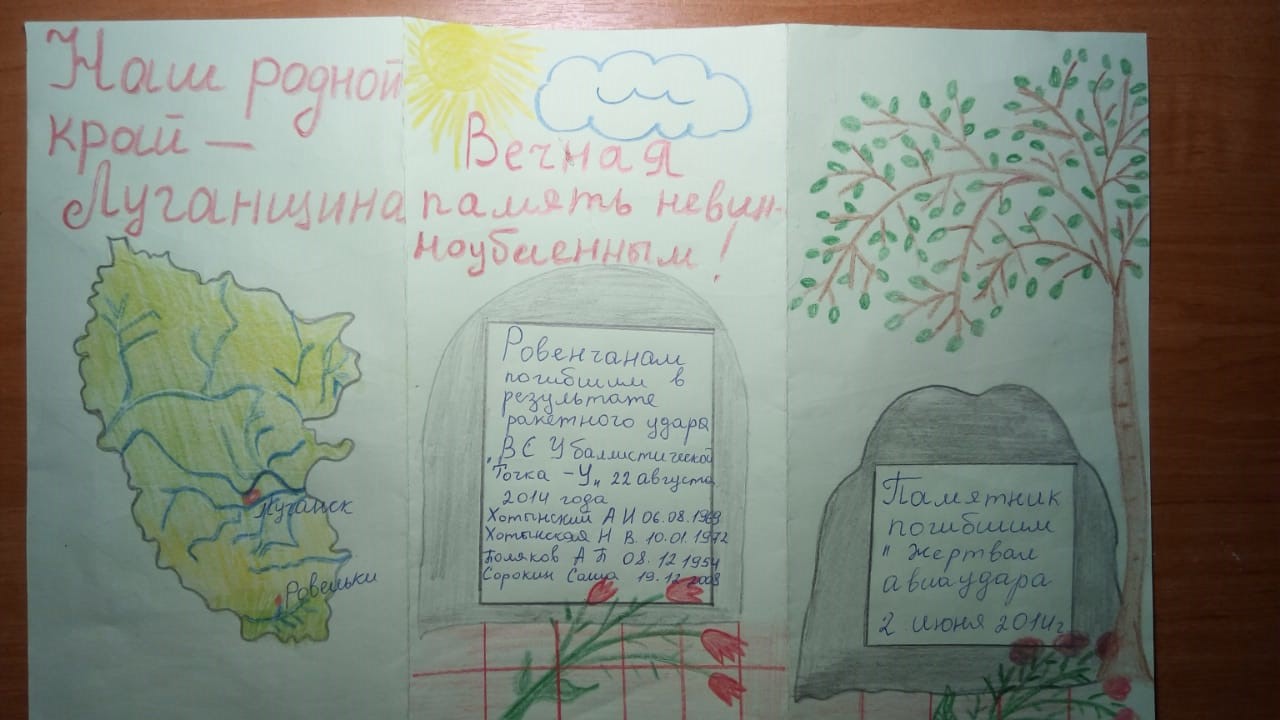 Наш родной
край –
Луганщина
Луганск
Ровеньки
Вечная
память невин-
ноубиенным!
Ровенчанам
погибшим в
результате
ракетного удара
„ВС У баллистической
Точка -У„ 22 августа
2014 года
Хотынский А И 06.08.1969
Хотынская Н В. 10.01.1972
Поляков А П 08.12 1954
Сорокин Саша 19.12 2008
Памятник
погибшим
" жертвам
авиаудара
2 июня 2014г